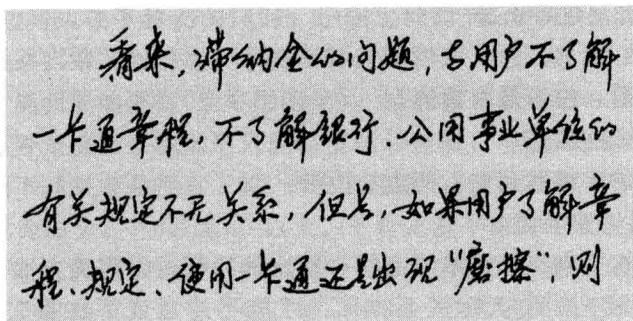 看来，滞纳金的问题，与用户不了解
一卡通章程，不了解银行、公用事业单位的
有关规定不无关系，但是，如果用户了解章
程、规定、使用一卡通还是出现“磨擦”，则